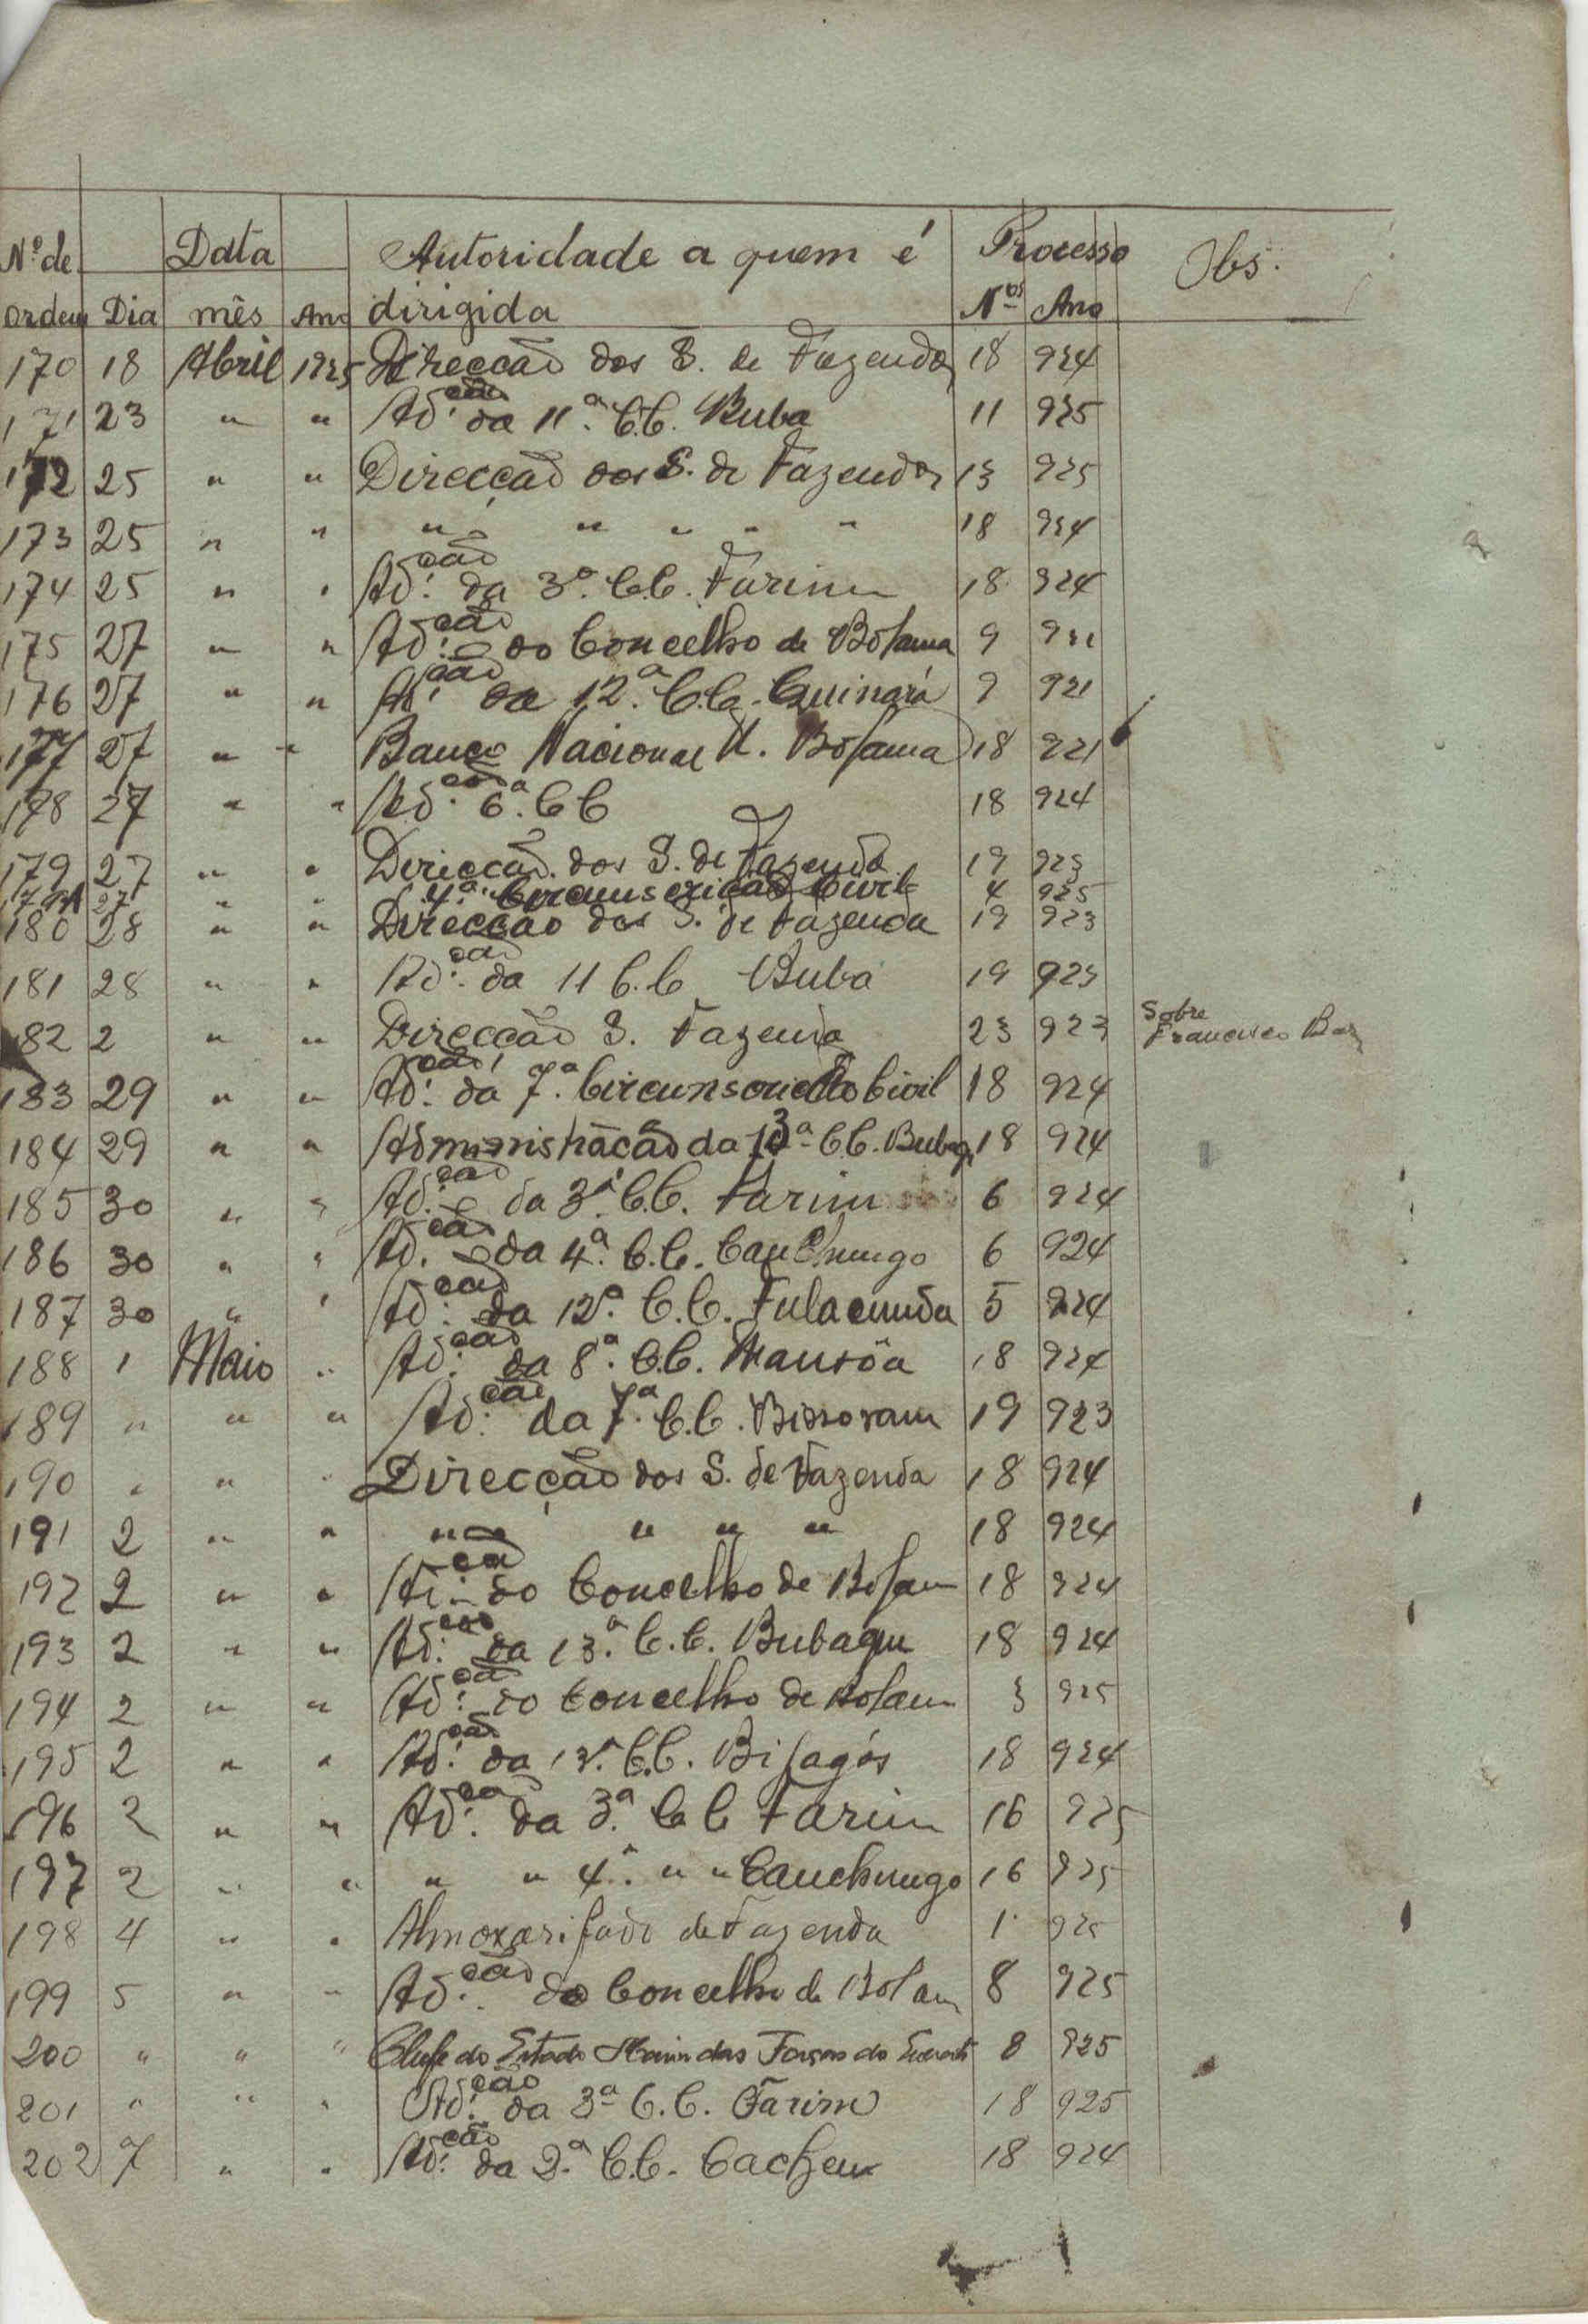 Nº de Data Autoridade a quem é Processo Obs.
Ordem Dia mês Ano dirigida Nos Ano
170 18 Abril 1925 Direcção dos S. de Fazenda 18 924
171 23 " " Ad.ção da 11ª C.C. Buba 11 925
172 25 " " Direcção dos S. de Fazenda 13 925
173 25 " " " " " " " 18 924
174 25 " " Ad.ção da 3ª C.C. Farim 18 924
175 27 " " Ad.ção do Concelho de Bolama 9 921
176 27 " " Ad.ção da 12ª C.C. Quinará 9 921
177 27 " " Banco Nacional U. Bolama 18 921
178 27 " " Ad.ção 6ª C C 18 924
179 27 " " Direcção dos S. de Fazenda 19 923
179A 27 " " 4ª Circunscrição Civil 4 925
180 28 " " Direcção dos S. de Fazenda 19 923
181 28 " " Ad.ção da 11 C.C Buba 19 923
182 2 " " Direcção S. Fazenda 23 923 Sobre
Francisco
183 29 " " Ad.ção da 7ª Circunscrição Civil 18 924
184 29 " " Administração da 13ª C.C. Bubaq. 18 924
185 30 " " Ad.ção da 3ª C.C. Farim 6 924
186 30 " " Ad.ção da 4ª C.C. Canchungo 6 924
187 30 " " Ad.ção da 12ª C.C. Fulacunda 5 924
188 1 Maio " Ad.ção da 8ª C.C. Mansôa 18 924
189 " " " Ad.ção da 7ª C.C. Bissoram 19 923
190 " " " Direcção dos S. de Fazenda 18 924
191 2 " " " " " " 18 924
192 2 " " Ad.ção do Concelho de Bolam 18 924
193 2 " " Ad.ção da 13ª C.C. Bubaqu 18 924
194 2 " " Ad.ção do Concelho de Bolam 3 925
195 2 " " Ad.ção da 13ª C.C. Bijagós 18 924
196 2 " " Ad.ção da 3ª C C Farim 16 925
197 2 " " " " 4ª " " Canchungo 16 925
198 4 " " Almoxarifado de Fazenda 1 925
199 5 " " Ad.ção do Concelho de Bolam 8 925
200 " " " Chefe do Estado Maior das Forças do Exercito 8 925
201 " " " Ad.ção da 3ª C.C. Farim 18 925
202 7 " " Ad.ção da 2ª C.C. Cacheu 18 924